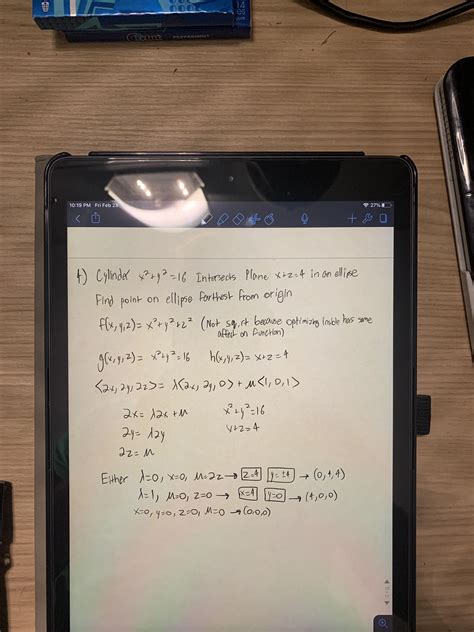 10:19 PM Fri Feb 23
27%
4) Cylinder x²+y²=16 Intersects Plane x+z=4 in an ellipse
Find point on ellipse farthest from origin
f(x,y,z)= x²+y²+z² (Not sq.rt because optimizing inside has same
affect on function)
g(x,y,z)= x²+y²=16 h(x,y,z)= x+z=4
<2x, 2y, 2z>= λ<2x, 2y, 0> + μ<1, 0, 1>
2x= λ2x+μ x²+y²=16
2y= λ2y x+z=4
2z= μ
Either λ=0, x=0, μ=2z→ z=4 y=±4 → (0,4,4)
λ=1, μ=0, z=0 → x=4 y=0 → (4,0,0)
x=0, y=0, z=0, μ=0 → (0,0,0)